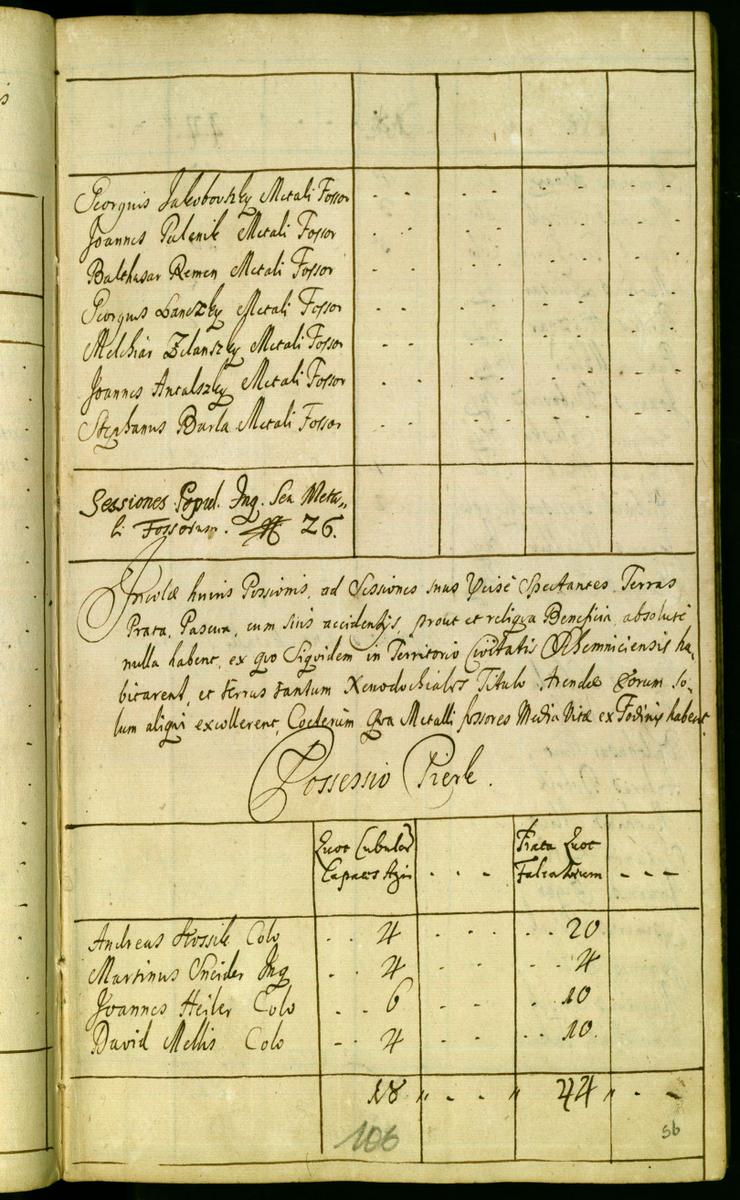 Georgius Jakobovszky Metali Fossor - - - - - - - -
Joannes Palenik Metali Fossor - - - - - - - -
Balthasar Remen Metali Fossor - - - - - - - -
Georgius Lanczky Metali Fossor - - - - - - - -
Melchiar Zelanszky Metali Fossor - - - - - - - -
Joannes Antalszky Metali Fossor - - - - - - - -
Stephanus Barla Metali Fossor - - - - - - - -
Sessiones Popul. Inq. Seu Meta„
li Fossorum. 26.
Incolæ huius Possionis, ad Sessiones suas Spectantes Terras
Prata, Pascua, cum suis accidentijs, prout et reliqua Beneficia, absolute
nulla habent, ex quo Siquidem in Territorio Civitatis Schemniciensis ha„
bitarent, et terras tantum Xenodochiales Titulo Arendæ Eorum So„
lum aliqui excollerent, Cæterum qua Metalli fossores Media Vitæ ex Fodinis habent.
Possessio Pierk.
Quot Cubulor Prata Quot
Capaces Agri - - - Falcatorum - - -
Andreas Kossik Colo - - 4 - - - - - 20
Martinus Sneider Inq - - 4 - - - - 4
Joannes Heiler Colo - - 6 - - - 10
David Mellis Colo - - 4 - - - - 10.
18 „ - - „ 44 „ - -
106
56